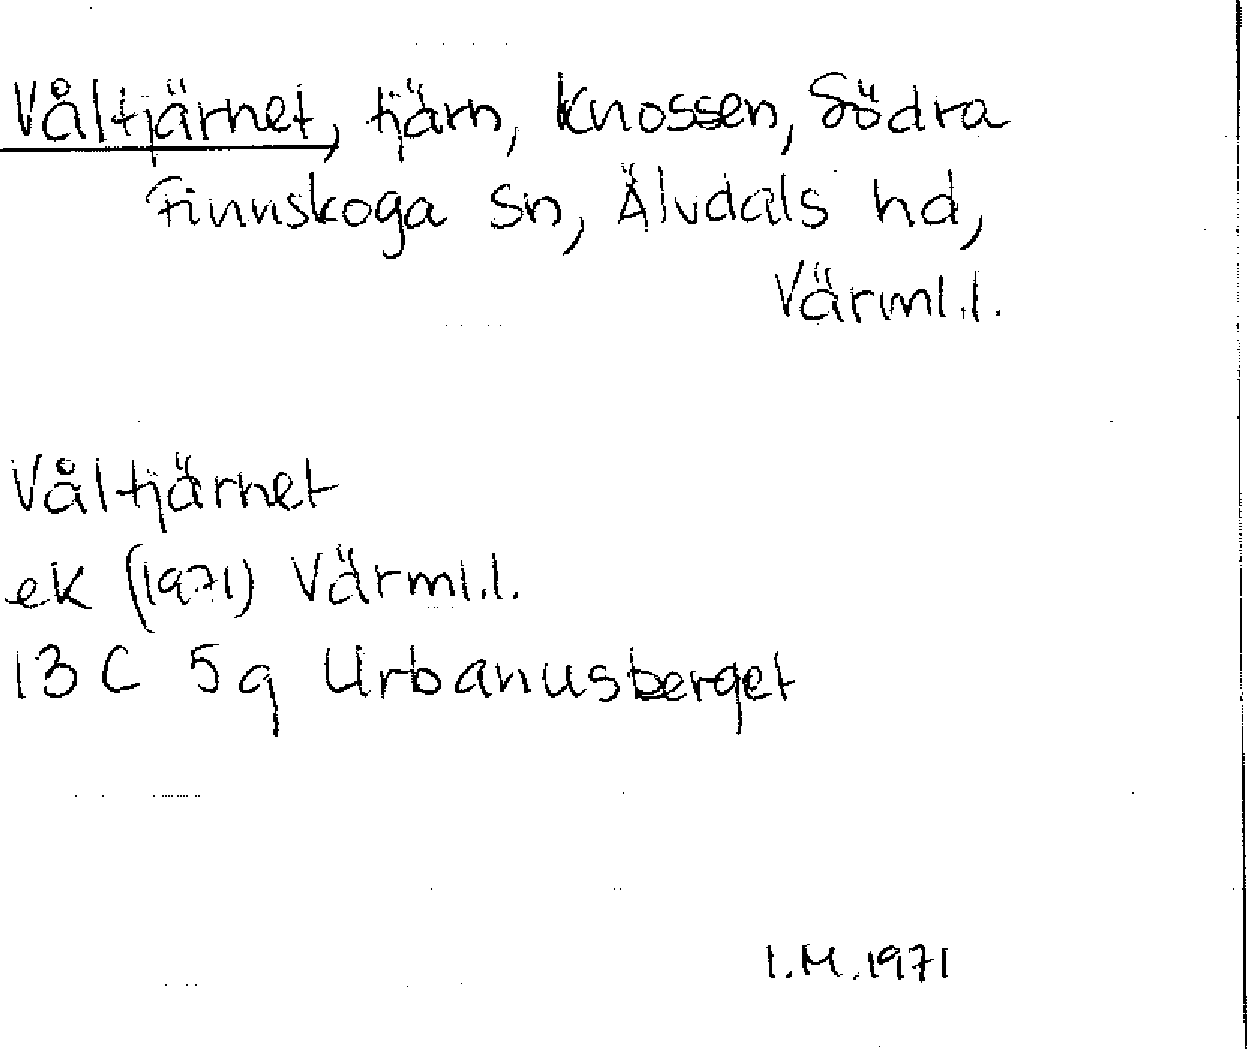 Våltjärnet, tjärn, Knossen, Södra
Finnskoga sn, Älvdals hd,
Värml.l.
Våltjärnet
ek (1971) Värml.l.
13 C 5g Urbanusberget
I.M.1971